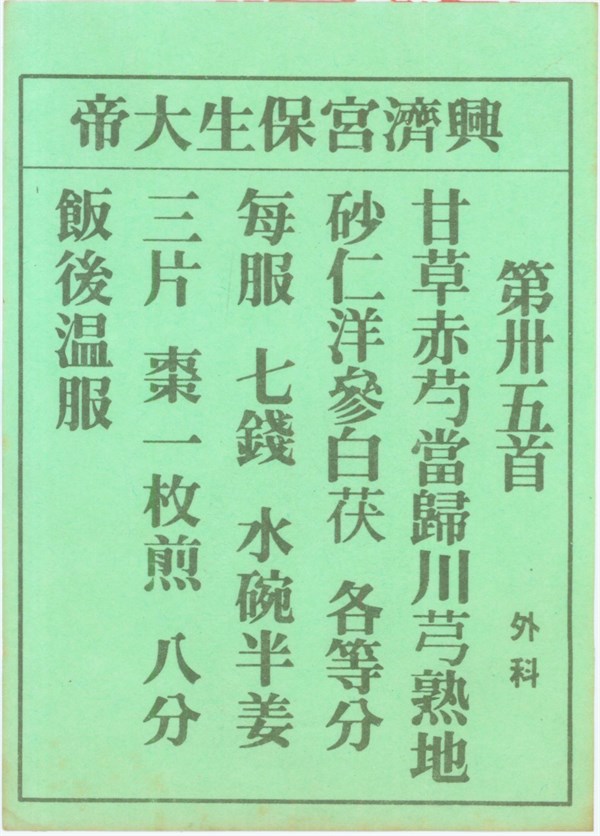 興濟宮保生大帝
第卅五首 外科
甘草赤芍當歸川芎熟地
砂仁洋參白茯 各等分
每服 七錢 水碗半姜
三片 棗一枚煎 八分
飯後温服